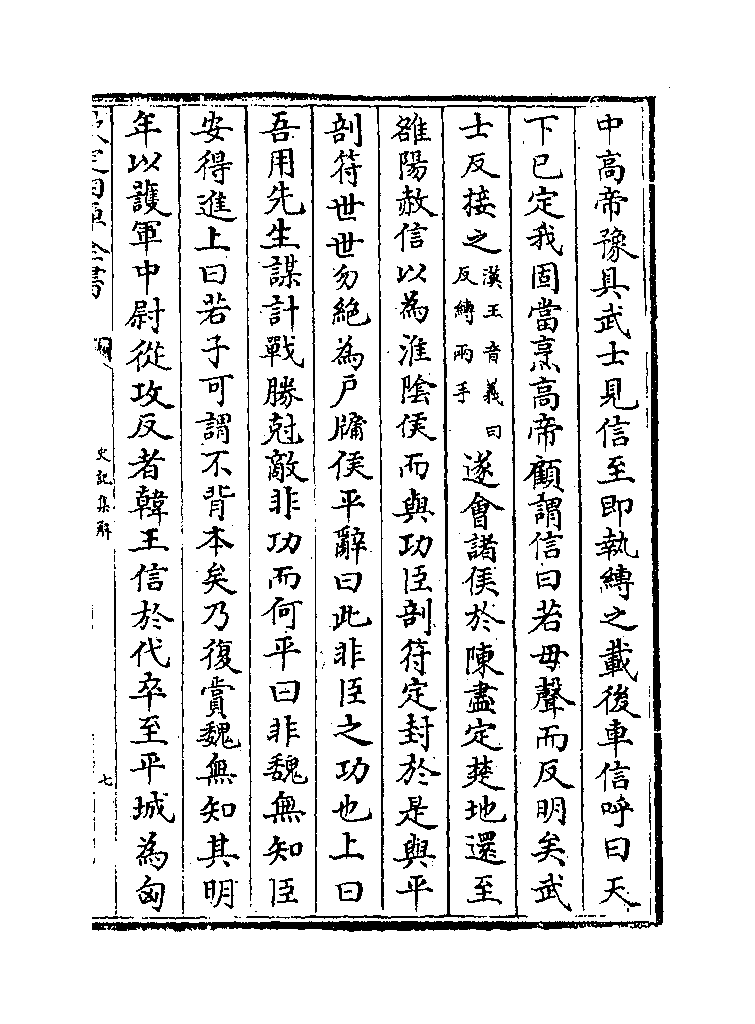 中高帝豫具武士見信至即執縛之載後車信呼曰天
下已定我固當烹高帝顧謂信曰若毋聲而反明矣武
士反接之漢王音義曰反縛兩手遂會諸侯於陳盡定楚地還至
雒陽赦信以為淮陰侯而與功臣剖符定封於是與平
剖符世世勿絶為戸牖侯平辭曰此非臣之功也上曰
吾用先生謀計戰勝尅敵非功而何平曰非魏無知臣
安得進上曰若子可謂不背本矣乃復賞魏無知其明
年以䕶軍中尉從攻反者韓王信於代卒至平城為匈
欽定四庫全書
史記集解
七